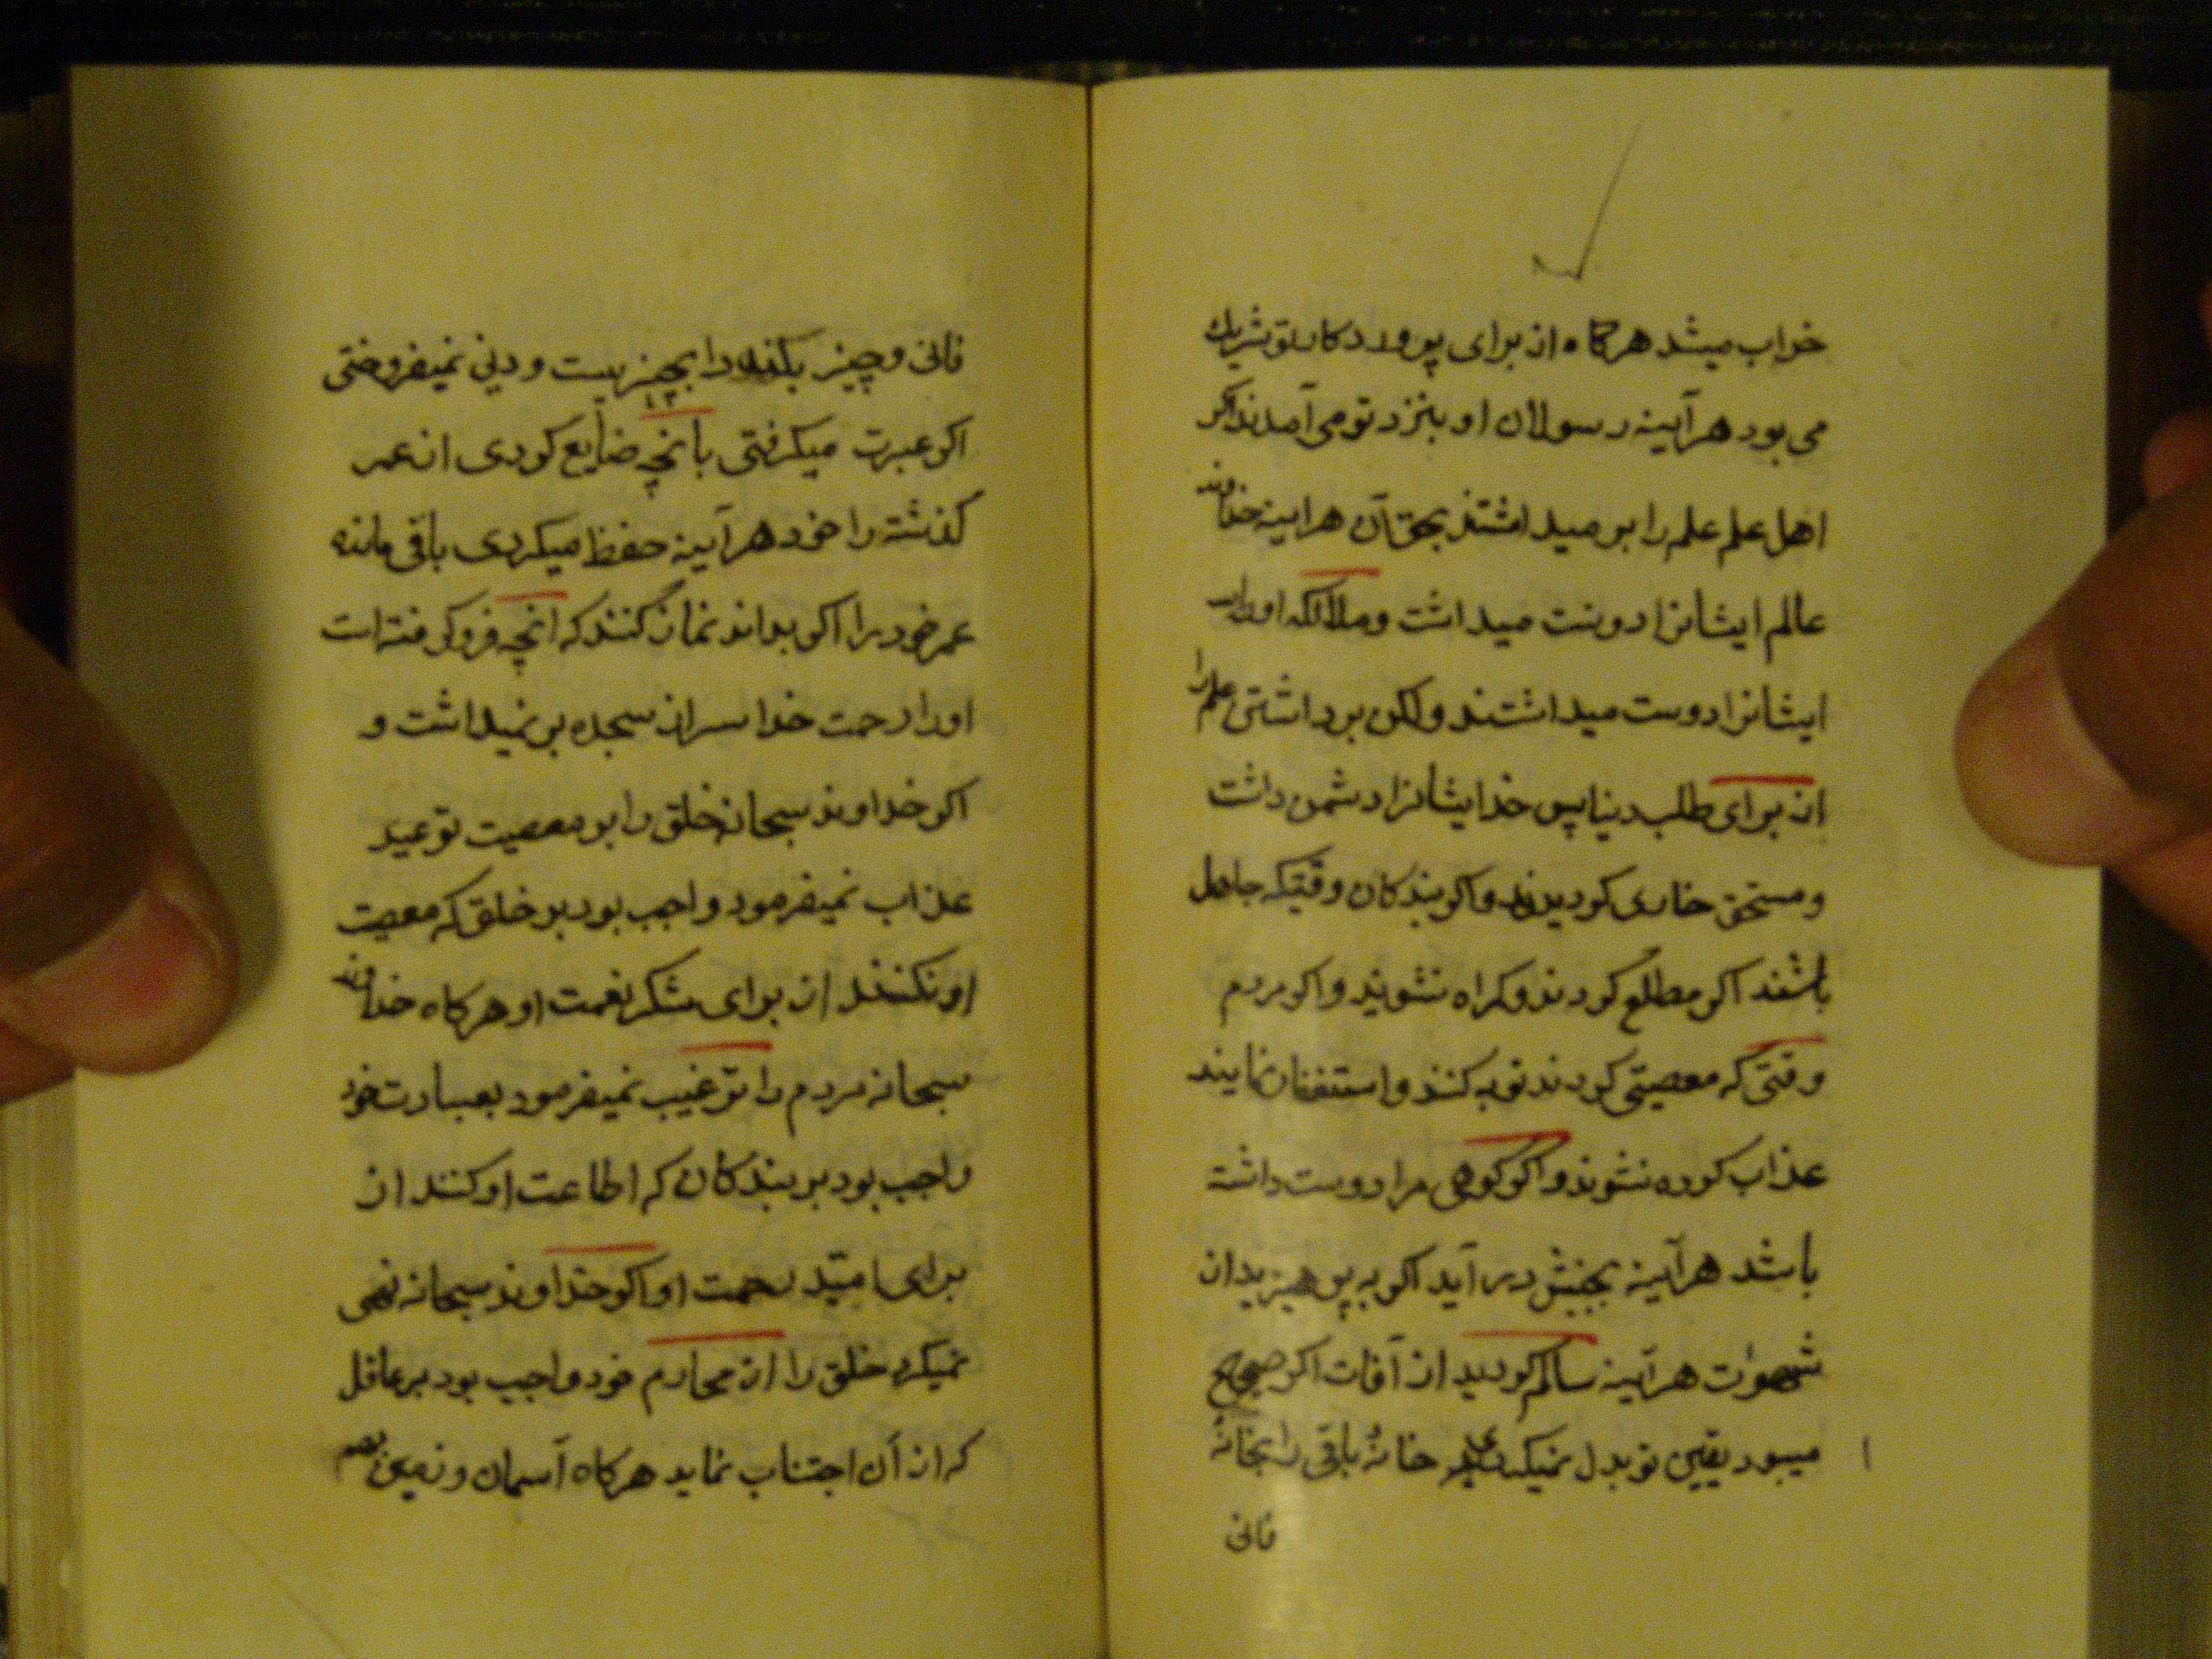 خواب میشد هرکاه از برای پروردکار تو شریك
می بود هرآیینه رسولان او بنزد تو می آمدند اکر
اهل علم علم را بر میداشتند بحق آن هرایینه خداوند
عالم ایشانرا دوست میداشت و ملائکه او
ایشانرا دوست میداشتند ولکن برداشتی علم را
از برای طلب دنیا پس خدا ایشانرا دشمن داشت
و مستحق خاری کردیدند و اکر بندکان وقتیکه جاهل
باشند اکر مطلع کردند و کمراه نشوند و اکر مردم
وقتی که معصیتی کردند توبه کنند و استغفار نمایند
عذاب کرده نشوند و اکر کوهی مرا دوست داشته
باشد هرآیینه بجنبش در آید اکر به پرهیزید از
شهوات هرآیینه سالم کردید از آفات اکر صحیح
میبود یقین تو بدل نمیکردی خانهٔ باقی را بخانهٔ
فانی
فانی و چیز بلند را بچیز پست و دنی نمیفروختی
اکر عبرت میکرفتی بانچه ضایع کردی از عمر
کذشته را خود هرآیینه حفظ میکردی باقی مانده
عمر خود را اکر بداند نماز کننده که انچه فرو کرفته است
او را از رحمت خدا سر از سجده بر نمیداشت و
اکر خداوند سبحانه خلق را بر معصیت توعید
عذاب نمیفرمود واجب بود بر خلق که معصیت
او نکنند از برای شکر نعمت او هرکاه خداوند
سبحانه مردم را ترغیب نمیفرمود بعبادت خود
واجب بود بر بندکان که اطاعت او کنند از
برای امید رحمت او اکر خداوند سبحانه نهی
نمیکرد خلق را از محارم خود واجب بود بر عاقل
که از آن اجتناب نماید هرکاه آسمان و زمین